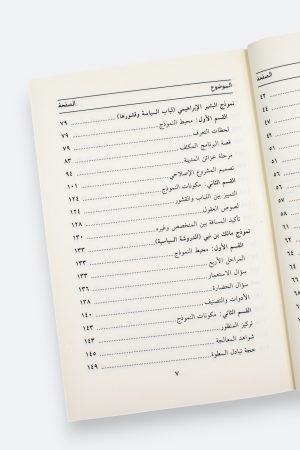 الموضوع الصفحة
نموذج البشير الإبراهيمي (لباب السياسة وقشورها) ٧٩
القسم الأول: محيط النموذج ٧٩
لحظات التعرف ٧٩
قصة البرنامج المكثف ٨٣
مرحلة خزائن المدينة ٩٤
تصميم المشروع الإصلاحي ١٠١
القسم الثاني: مكونات النموذج ١٢٤
التمييز بين اللباب والقشور ١٢٤
لصوص العقول ١٢٨
تأكيد المسافة بين المتخصص وغيره ١٣٠
نموذج مالك بن نبي (الدروشة السياسية) ١٣٣
القسم الأول: محيط النموذج ١٣٣
المراحل الأربع ١٣٣
سؤال الاستعمار ١٣٦
سؤال الحضارة ١٣٨
الأدوات والتصنيف ١٤٠
القسم الثاني: مكونات النموذج ١٤٣
تركيز المنظور ١٤٣
شواهد المعالجة ١٤٥
حجة تبادل السطوة ١٤٩
٧
الصفحة
٤٢
٤٤
٤٧
٤٩
٥١
٥١
٥٦
٥٦
٥٧
٥٨
٦١
٦٢
٦٤
٦٤